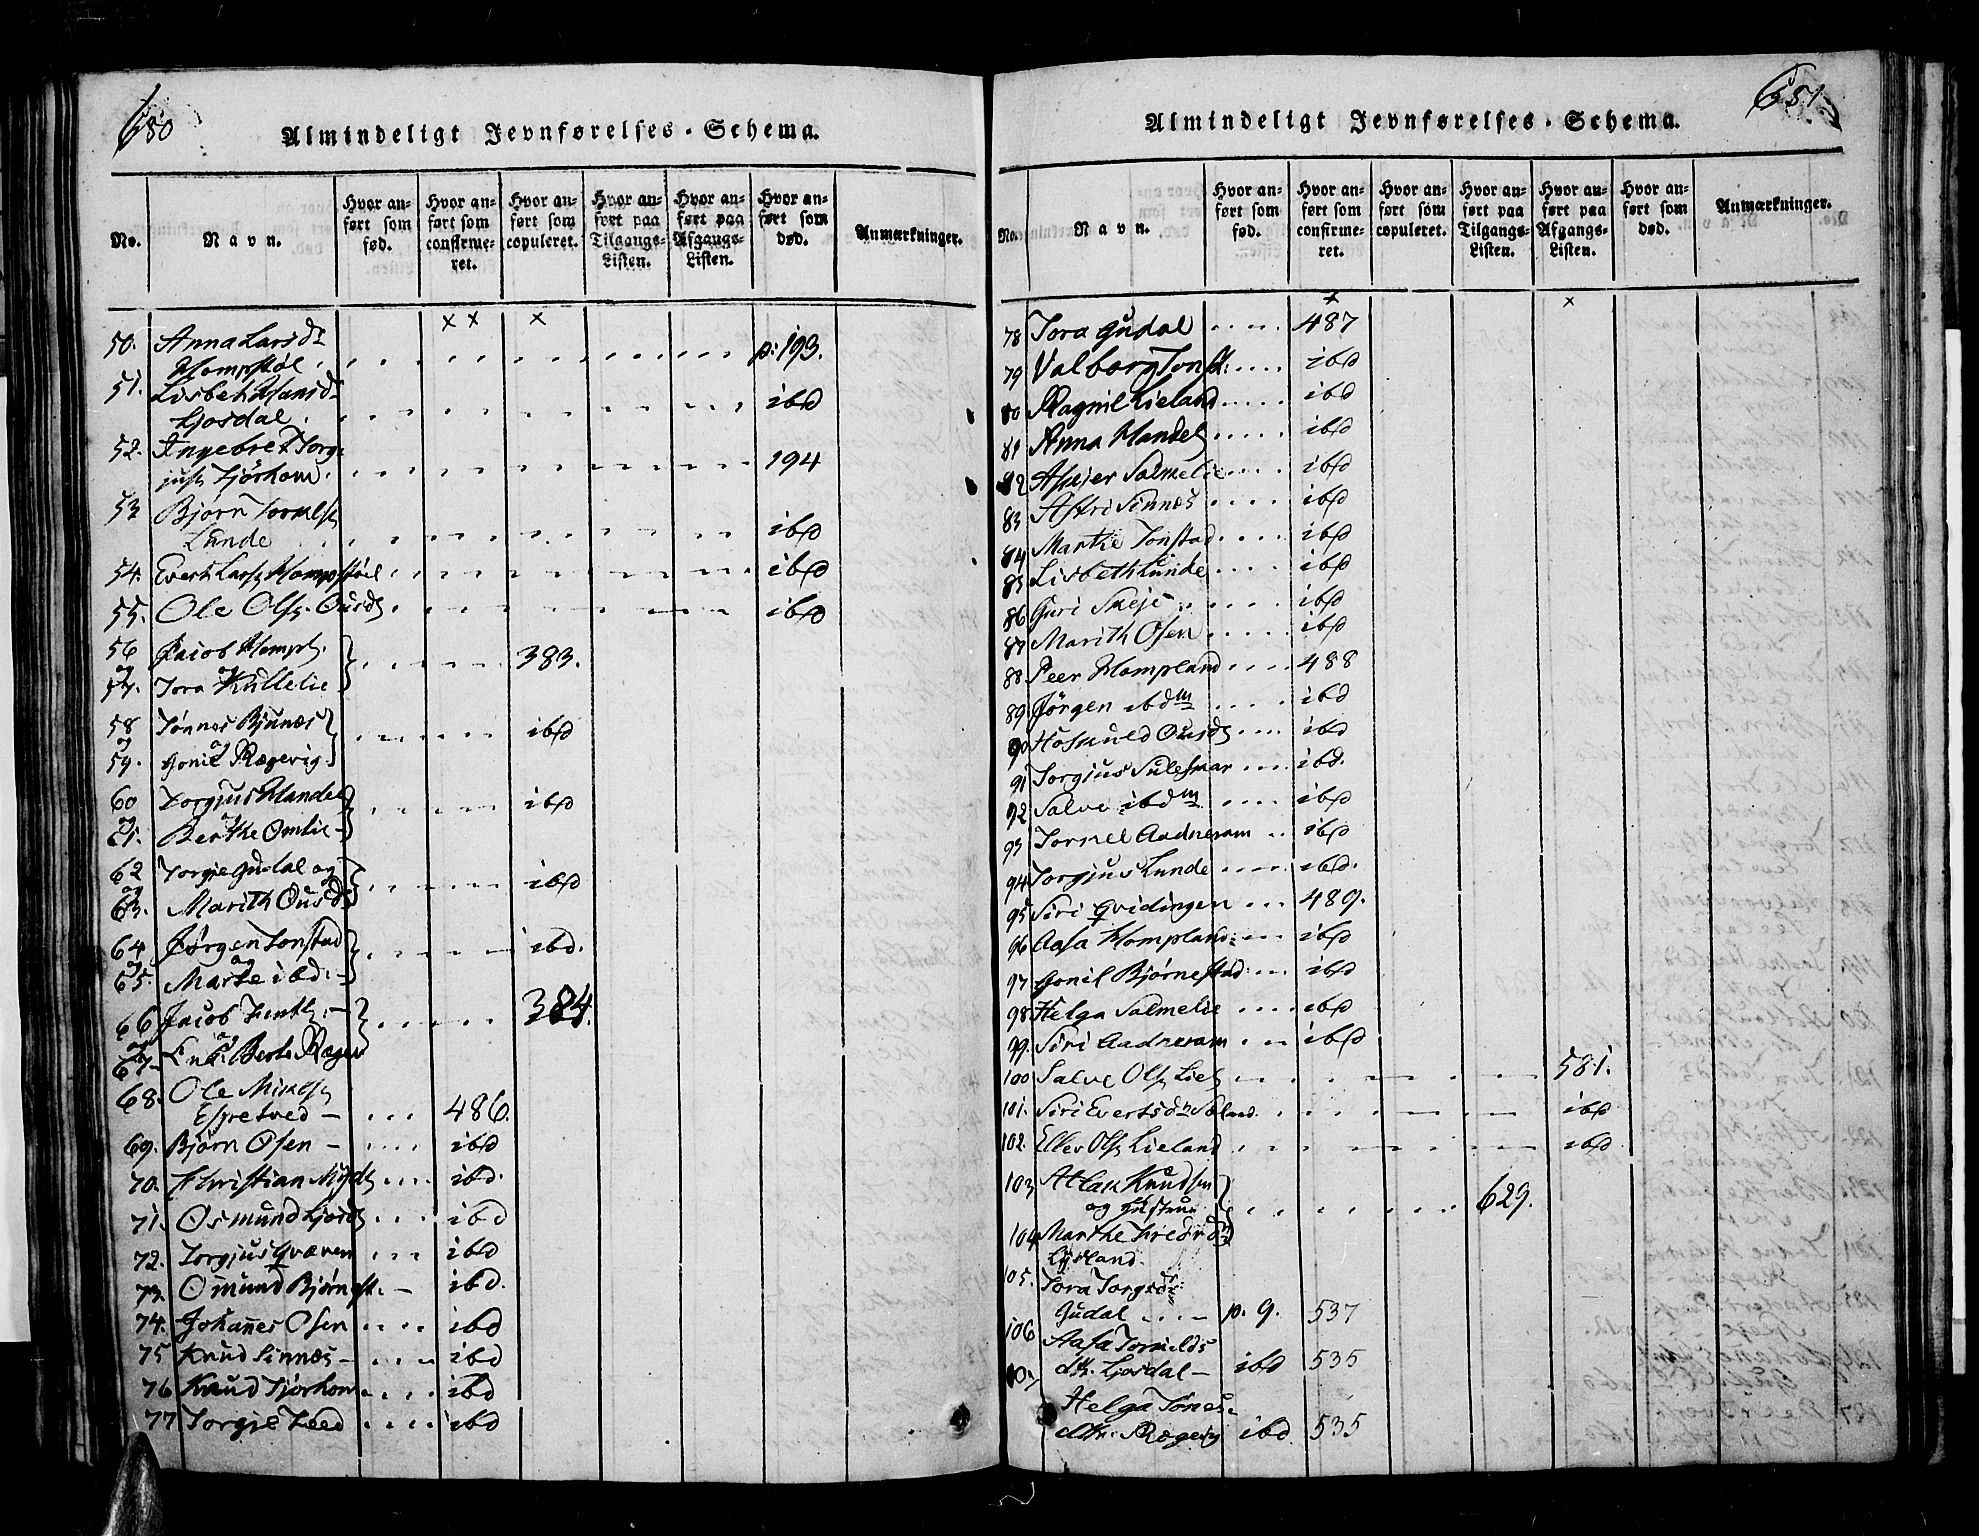 650
Almindeligt Jevnførelses-Schema.
No.
Navn.
Hvor anført som fød.
Hvor anført som confirmeret.
Hvor anført som copuleret.
Hvor anført paa Tilgangs-Listen.
Hvor anført paa Afgangs-Listen.
Hvor anført som død.
Anmærkninger.
x x x
50. Anna Larsdr
Hompstøl p: 193.
51. Lisbet Hansd
Ljosdal. ibd
52. Ingebret Torg
jusn Tjörhom. 194
53 Bjørn Tormelsn
Lunde ibd
54. Evert Larsn Hompstøel ibd
55. Ole Olsn Ousdl ibd
56 Jacob Hompl.
og og 383.
57. Tora Kullelie
58 Tönnes Bjunæs
og og ibd
59. Gonil Rægevig
60 Torgjus Handel
og og ibd
61. Berthe Omlie
62 Torgje Gudal og
og ibd
63. Marith Ousdl
64 Jørgen Tonstad
og og ibd.
65. Marte ibd:
66 Jacob
og 384.
67. Enk: Berte Rægev
68. Ole
Espetved 486.
69. Bjørn Osen ibd
70. Christian Mydl ibd.
71. Osmund Ljosdl ibd
72. Torgjus Qvæven ibd
73. Omund Bjørnest. ibd.
74. Johannes Osen ibd
75 Knud Sinnes ibd
76 Knud Tjørhom ibd
77 Torgje ibd
651
Almindeligt Jevnførelses-Schema.
No.
Navn.
Hvor anført som fød.
Hvor anført som confirmeret.
Hvor anført som copuleret.
Hvor anført paa Tilgangs-Listen.
Hvor anført paa Afgangs-Listen.
Hvor anført som død.
Anmærkninger.
x x
78 Tora Gudal 487
79 Valborg Tonst: ibd
80 Ragnil Lieland ibd
81 Anna Handel ibd
82 Salmelie ibd
83 Astri Sinnes ibd
84 Marthe Tonstad ibd
85 Lisbeth Lunde ibd
86 Guri ibd
87 Marith Osen ibd
88 Peer Hompland 488
89 Jørgen ibdm ibd
90 Ousdl ibd
91 Torgjus Suleskar ibd.
92 Salve ibdm ibd
93 Tormel Aadneram ibd
94 Torgjus Lunde ibd.
95 Siri Qvidingen 489.
96 Aasa Hompland: ibd
97 Gonil Bjørnestad: ibd
98 Helga Salmelie ibd
99. Siri Aadneram ibd
100 Salve Olsn 581.
101. Siri Evertsdr ibd
102. Ellev Olsn Lieland ibd
103 Atlak Knudsen
og Hustrue 629.
104 Marthe
Lysland.
105. Tora Torgesdr:
Gudal p. 9. 537
106 Aasa Tormelds
dtr. Ljosdal ibd 535
107
Helga Tönes:
dtr. ibd 535